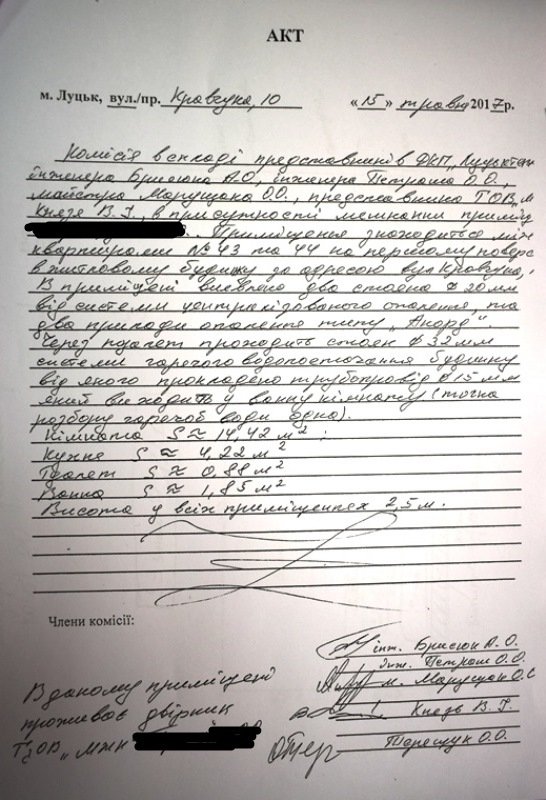 АКТ
м. Луцьк, вул./пр. Кравчука, 10 «15» травня 2017р.
Комісія в складі представників ДКП „Луцьктеп
інженера Брисюка А.О, інженера Петраша О.О.,
майстра Марущака О.О., представника ТОВ „м
Князя В.І., в присутності мешканки приміщ
Приміщення знаходиться між
квартирами № 43 та 44 на першому поверс
в житловому будинку за адресою вул Кравчука,
В приміщені виявлено два стояка ø 20мм
від системи централізованого опалення, та
два прилади опалення типу „Акорд".
Через туалет проходить стояк ø 32мм
системи гарячого водопостачання будинку
від якого прокладено трубопровід ø 15 мм
який виходить у ванну кімнату (точка
розбору гарячої води одна).
Кімната S ≈ 14,42 м² ;
Кухня S ≈ 4,22 м²
Туалет S ≈ 0,88 м²
Ванна S ≈ 1,85 м²
Висота у всіх приміщеннях 2,5 м.
Члени комісії:
інж. Брисюк А.О.
інж. Петраш О.О.
м. Марущак О.О
Князь В.І.
Терещук О.О.
В даному приміщені
проживає двірник
ТзОВ „мжк